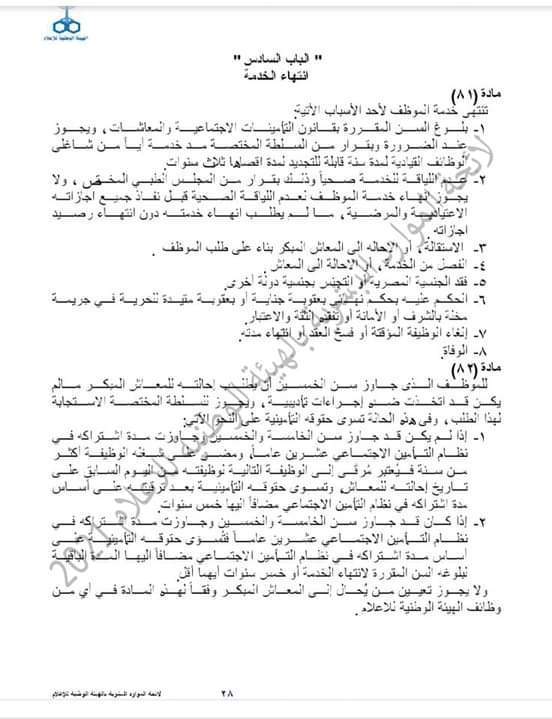 الهيئة الوطنية للإعلام
" الباب السادس "
انتهاء الخدمة
مادة (٨١)
تنتهى خدمة الموظف لأحد الأسباب الآتية:
١- بلوغ السن المقررة بقانون التأمينات الاجتماعية والمعاشات، ويجوز
عند الضرورة وبقرار من السلطة المختصة مد خدمة أياً من شاغلى
الوظائف القيادية لمدة سنة قابلة للتجديد لمدة اقصاها ثلاث سنوات.
٢- عدم اللياقة للخدمة صحياً وذلك بقرار من المجلس الطبي المختص، ولا
يجوز إنهاء خدمة الموظف لعدم اللياقة الصحية قبل نفاذ جميع اجازاته
الاعتيادية والمرضية، ما لم يطلب انهاء خدمته دون انتهاء رصيد
اجازاته.
٣- الاستقالة، أو الاحاله الى المعاش المبكر بناء على طلب الموظف.
٤- الفصل من الخدمة، أو الاحالة الى المعاش.
٥- فقد الجنسية المصرية أو التجنس بجنسية دولة أخرى.
٦- الحكم عليه بحكم نهائي بعقوبة جناية أو بعقوبة مقيدة للحرية في جريمة
مخلة بالشرف أو الأمانة أو تفقده الثقة والاعتبار.
٧- إلغاء الوظيفة المؤقتة أو فسخ العقد أو انتهاء مدته.
٨- الوفاة.
مادة (٨٢)
للموظف الذى جاوز سن الخمسين أن يطلب إحالته للمعاش المبكر مالم
يكن قد اتخذت ضده إجراءات تأديبية، ويجوز للسلطة المختصة الاستجابة
لهذا الطلب، وفى هذه الحالة تسوى حقوقه التأمينية على النحو الآتي:
١- إذا لم يكن قد جاوز سن الخامسة والخمسين وجاوزت مدة اشتراكه في
نظام التأمين الاجتماعي عشرين عاماً، ومضى على شغله الوظيفة أكثر
من سنة فيُعتبر مُرقى إلى الوظيفة التالية لوظيفته من اليوم السابق على
تاريخ إحالته للمعاش، وتسوى حقوقه التأمينية بعد ترقيته على أساس
مدة اشتراكه في نظام التأمين الاجتماعي مضافاً اليها خمس سنوات.
٢- إذا كان قد جاوز سن الخامسة والخمسين وجاوزت مدة اشتراكه في
نظام التأمين الاجتماعي عشرين عاماً فتُسوى حقوقه التأمينية على
أساس مدة اشتراكه في نظام التأمين الاجتماعي مضافاً اليها المدة الباقية
لبلوغه السن المقررة لانتهاء الخدمة أو خمس سنوات أيهما أقل.
ولا يجوز تعيين من يُحال إلى المعاش المبكر وفقاً لهذه المادة في أي من
وظائف الهيئة الوطنية للاعلام.
لائحة الموارد البشرية بالهيئة الوطنية للاعلام 2021
٢٨
لائحة الموارد البشرية بالهيئة الوطنية للإعلام